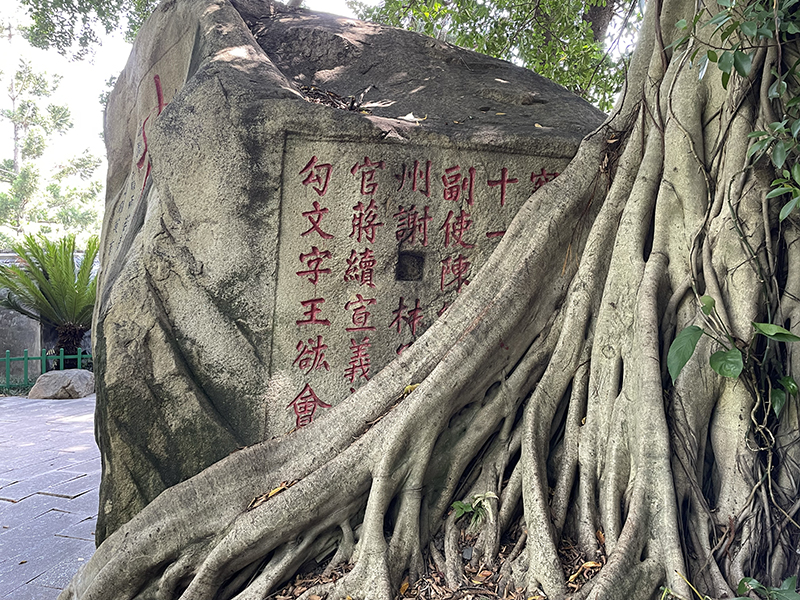 十一
副使陳
州謝林
官蔣續宣義
勾文字王㳄會